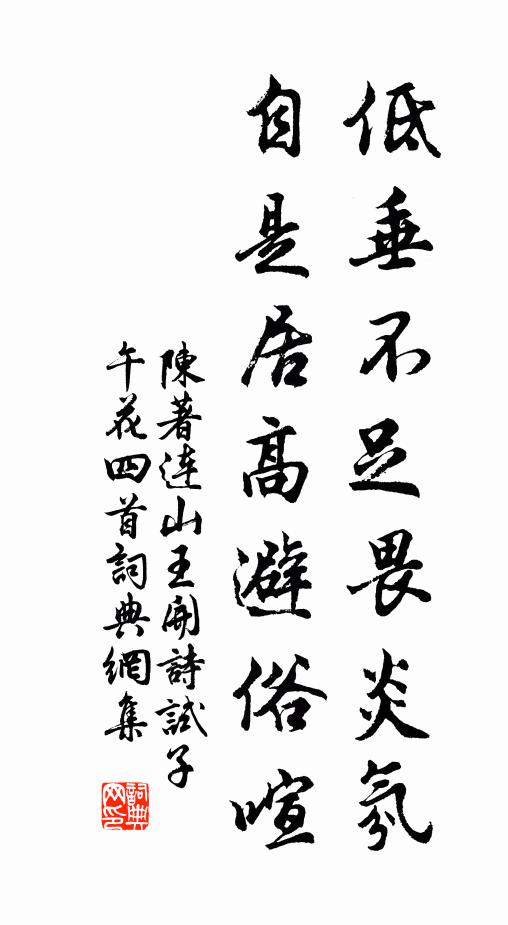 低垂不足畏炎氛
自是居高避俗喧
陳著連山王開詩試子
午花四首詞典網集
詞典
网印